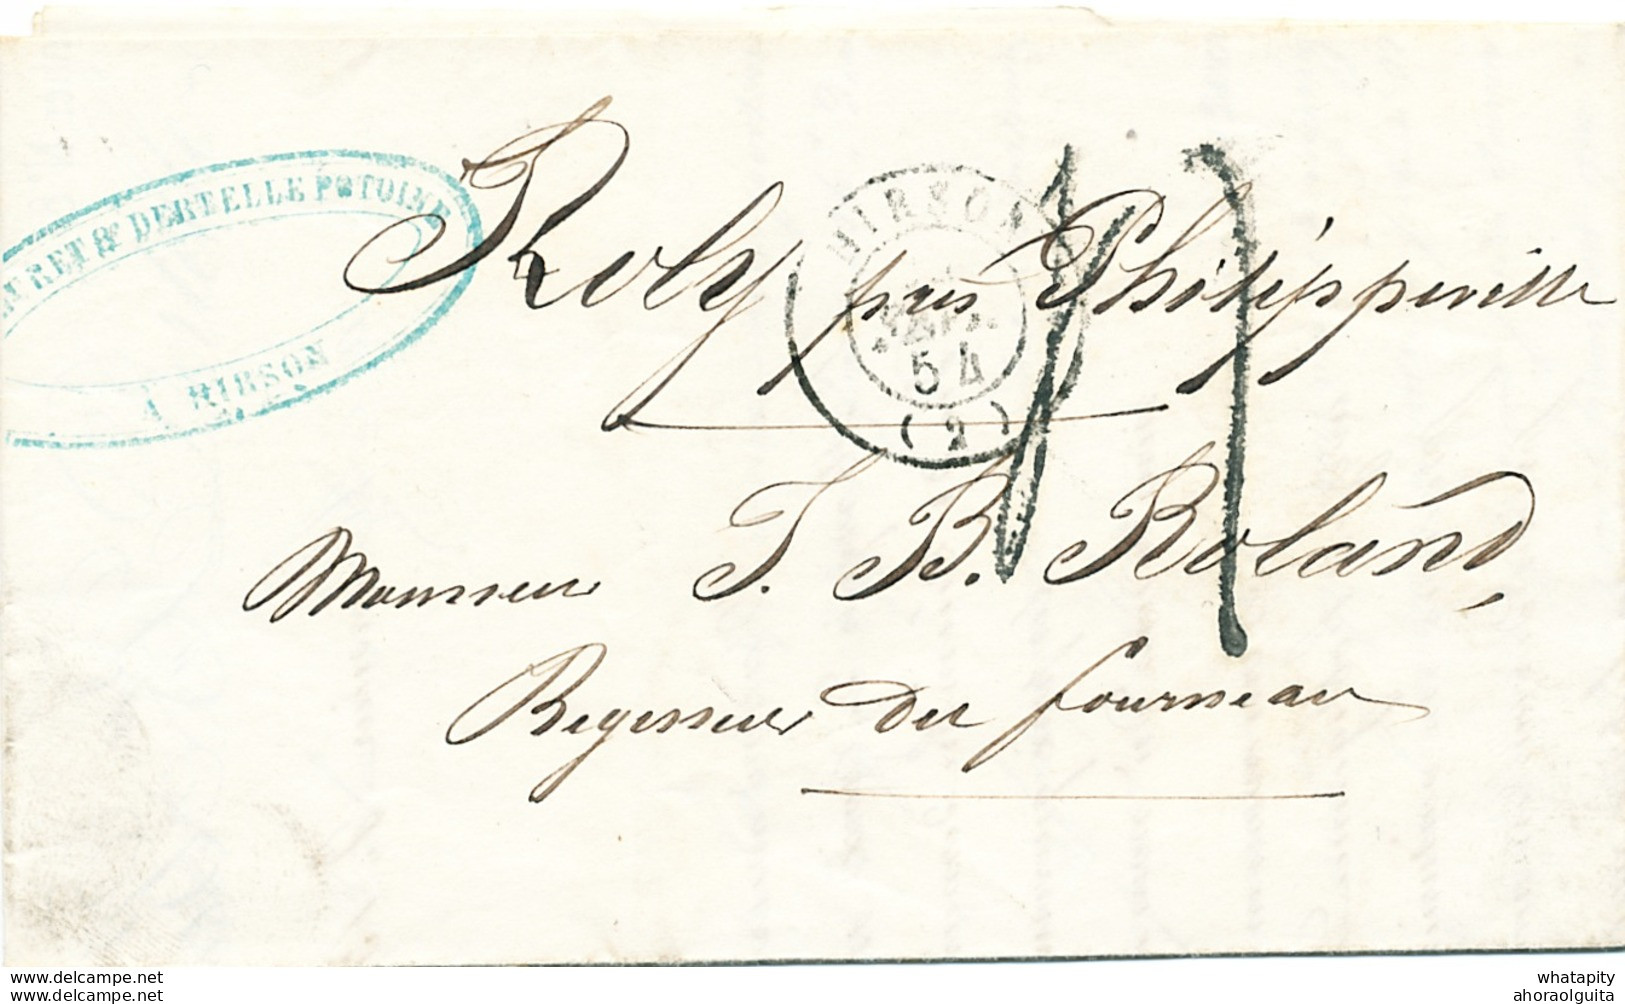 & DERTELLE POTOINE
À HIRSON
HIRSON
SEPT.
54
(2)
Roly près Philippeville
Monsieur J. B. Roland,
Regisseur du fourneau
delcampe.net
delcampe.net
whatapity
ahoraolguita